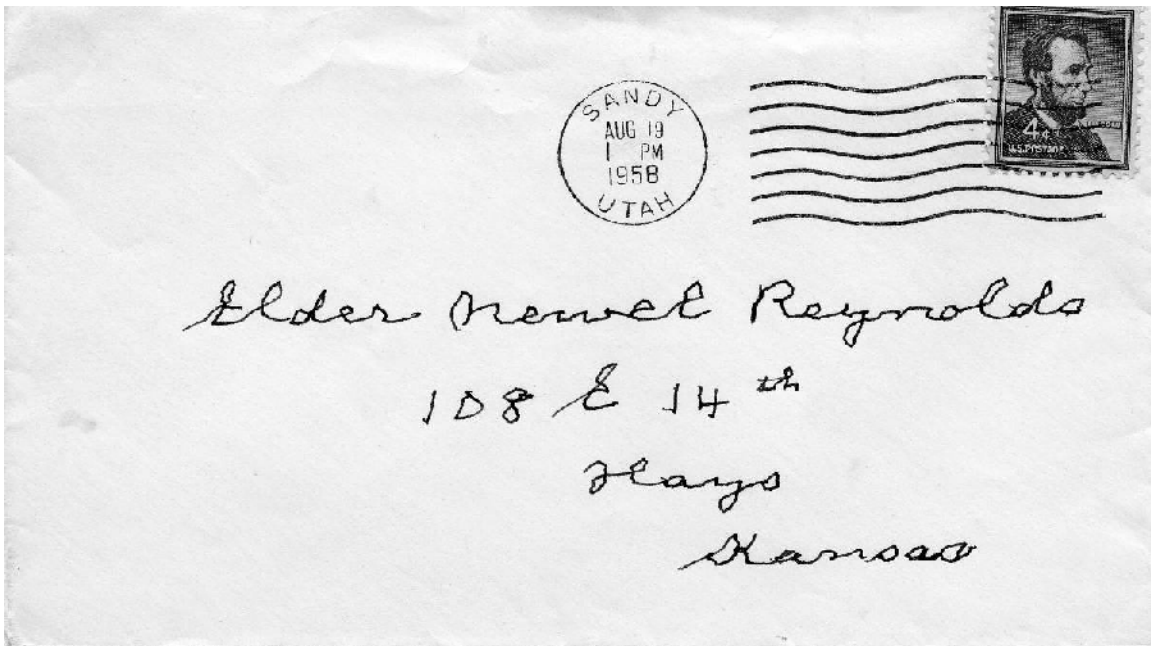 SANDY
AUG 19
1 PM
1958
UTAH
4¢
U.S. POSTAGE
Elder Newel Reynolds
108 E 14th
Hays
Kansas